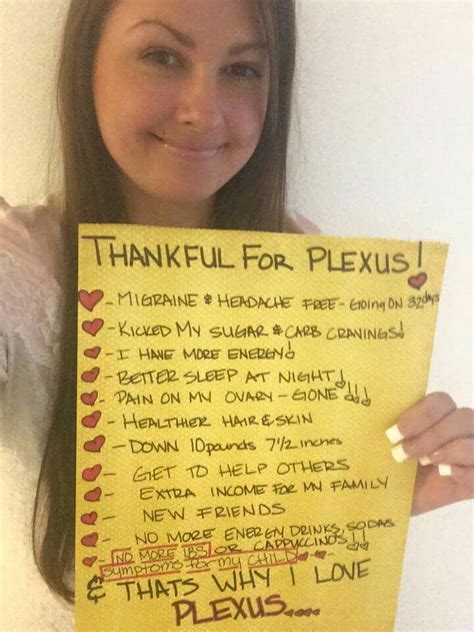 THANKFUL FOR PLEXUS!
- MIGRAINE & HEADACHE FREE - GOING ON 32 days
- KICKED MY SUGAR & CARB CRAVINGS!
- I HAVE MORE ENERGY!
- BETTER SLEEP AT NIGHT!
- PAIN ON MY OVARY - GONE!!!
- HEALTHIER HAIR & SKIN
- DOWN 10 pounds 7 1/2 inches
- GET TO HELP OTHERS
- EXTRA INCOME FOR MY FAMILY
- NEW FRIENDS
- NO MORE ENERGY DRINKS, SODAS
OR CAPPUCCINOS!!
- NO MORE IBS
SYMPTOMS for my CHILD
& THATS WHY I LOVE
PLEXUS....